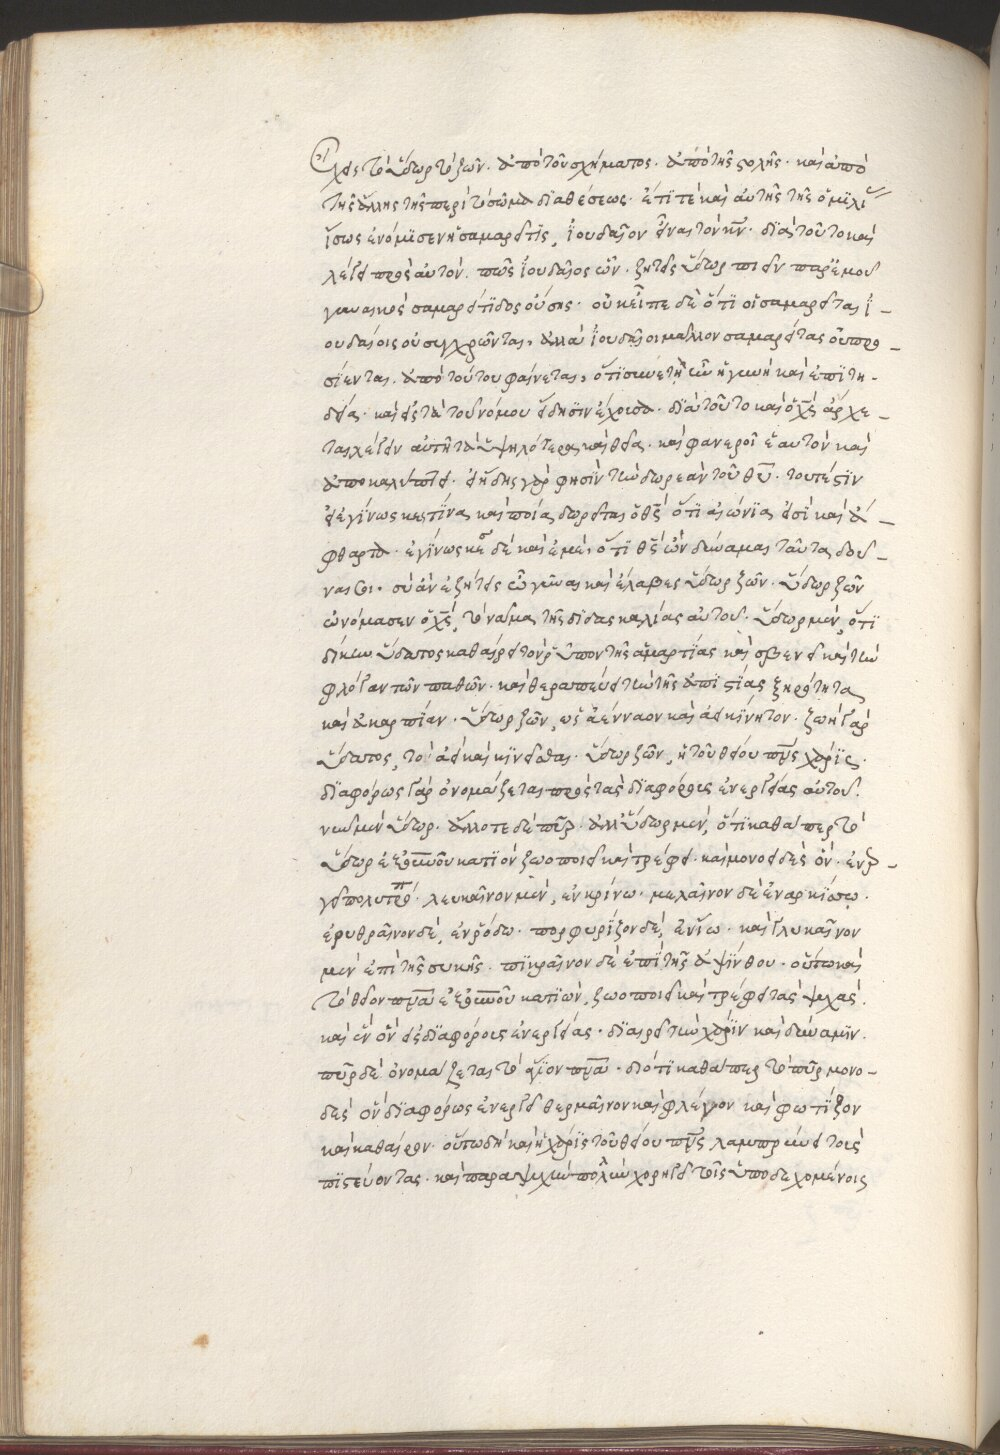 ἔχεις τὸ ὕδωρ τὸ ζῶν. ἀπὸ τοῦ σχήματος. ἀπὸ τῆς στολῆς. καὶ ἀπὸ
τῆς ἄλλης τῆς περὶ τὸ σῶμα διαθέσεως. ἔτι τὲ καὶ αὐτῆς τῆς ὁμιλί
ἴσως ἐνόμισεν ἡ σαμαρεῖτις, ἰουδαῖον εἶναι τὸν κν̄. διὰ τοῦτο καὶ
λέγει πρὸς αὐτόν. πῶς ἰουδαῖος ὢν. ζητεῖς ὕδωρ πιεῖν παρ' ἐμοῦ
γυναικὸς σαμαρείτιδος οὔσης. οὐκ εἶπε δὲ ὅτι οἱ σαμαρεῖται ἰ-
ουδαίοις οὐ συγχρῶνται, ἀλλὰ ἰουδαῖοι μᾶλλον σαμαρείτας οὐ προ-
σίενται. ἀπὸ τούτου φαίνεται, ὅτι συνετὴ ἦν ἡ γυνὴ καὶ ἐπιτη-
δεία. καὶ εἰς τὰ τοῦ νόμου εἴδησιν ἔχουσα. διὰ τοῦτο καὶ ὁ χς̄ ἄρχε-
ται λέγειν αὐτῇ τὰ ὑψηλότερα καὶ θεῖα. καὶ φανεροῖ ἑαυτὸν καὶ
ἀποκαλύπτει. εἰ ᾔδεις γὰρ φησὶν τὴν δωρεὰν τοῦ θῡ. τουτέστιν
εἰ ἐγίνωσκες τίνα καὶ ποῖα δωρεῖται ὁ θς̄ ὅτι αἰώνια εἰσὶ καὶ ἄ-
φθαρτα. ἐγίνωσκες δὲ καὶ ἐμὲ, ὅτι θς̄ ὢν δύναμαι ταῦτα δοῦ-
ναι σοι. σὺ ἂν ἐζήτεις ὦ γύναι καὶ ἔλαβες ὕδωρ ζῶν. ὕδωρ ζῶν
ὠνόμασεν ὁ χς̄, τὸ νᾶμα τῆς διδασκαλίας αὐτοῦ. ὕδωρ μὲν, ὅτι
δίκην ὕδατος καθαίρει τὸν ῥύπον τῆς ἁμαρτίας καὶ σβεννύει καὶ τὴν
φλόγα τῶν παθῶν. καὶ θεραπεύει τὴν τῆς ἀπιστίας ξηρότητα
καὶ ἀκαρπίαν. ὕδωρ ζῶν, ὡς ἀένναον καὶ ἀεικίνητον. ζωὴ γὰρ
ὕδατος, τὸ ἀεὶ καὶ κινεῖσθαι. ὕδωρ ζῶν, ἡ τοῦ θείου πνς̄ χάρις.
διαφόρως γὰρ ὀνομάζεται πρὸς τὰς διαφόρους ἐνεργείας αὐτοῦ.
νῦν μὲν ὕδωρ. ἄλλοτε δὲ πῦρ. ἀλλ' ὕδωρ μὲν, ὅτι καθάπερ τὸ
ὕδωρ ἐξ οὐνοῦ κατιὸν ζωοποιεῖ καὶ τρέφει. καὶ μονοειδὲς ὂν. ἐνερ-
γεῖ πολυτρόπ. λευκαῖνον μὲν, ἐν κρίνω. μελαῖνον δὲ ἐν ναρκίσσῳ.
ἐρυθραῖνον δὲ, ἐν ῥόδω. πορφυρίζον δὲ, ἐν ἴω. καὶ γλυκαῖνον
μὲν ἐπὶ τῆς συκῆς. πικραῖνον δὲ ἐπὶ τῆς ἀψίνθου. οὕτω καὶ
τὸ θεῖον πνᾱ ἐξ οὐνοῦ κατιὼν, ζωοποιεῖ καὶ τρέφει τὰς ψυχάς.
καὶ ἓν ὂν εἰς διαφόρους ἐνεργείας. διαιρεῖ τὴν χάριν καὶ δύναμιν.
πῦρ δὲ ὀνομάζεται τὸ ἅγιον πνᾱ. διότι καθάπερ τὸ πῦρ μονο-
ειδὲς ὂν διαφόρως ἐνεργεῖ θερμαῖνον καὶ φλέγον καὶ φωτίζον
καὶ καθαίρον. οὕτω δὴ καὶ ἡ χάρις τοῦ θείου πνς̄ λαμπρύνει τοὺς
πιστεύοντας. καὶ παραψυχὴν πολλὴν χορηγεῖ τοῖς ὑποδεχομένοις